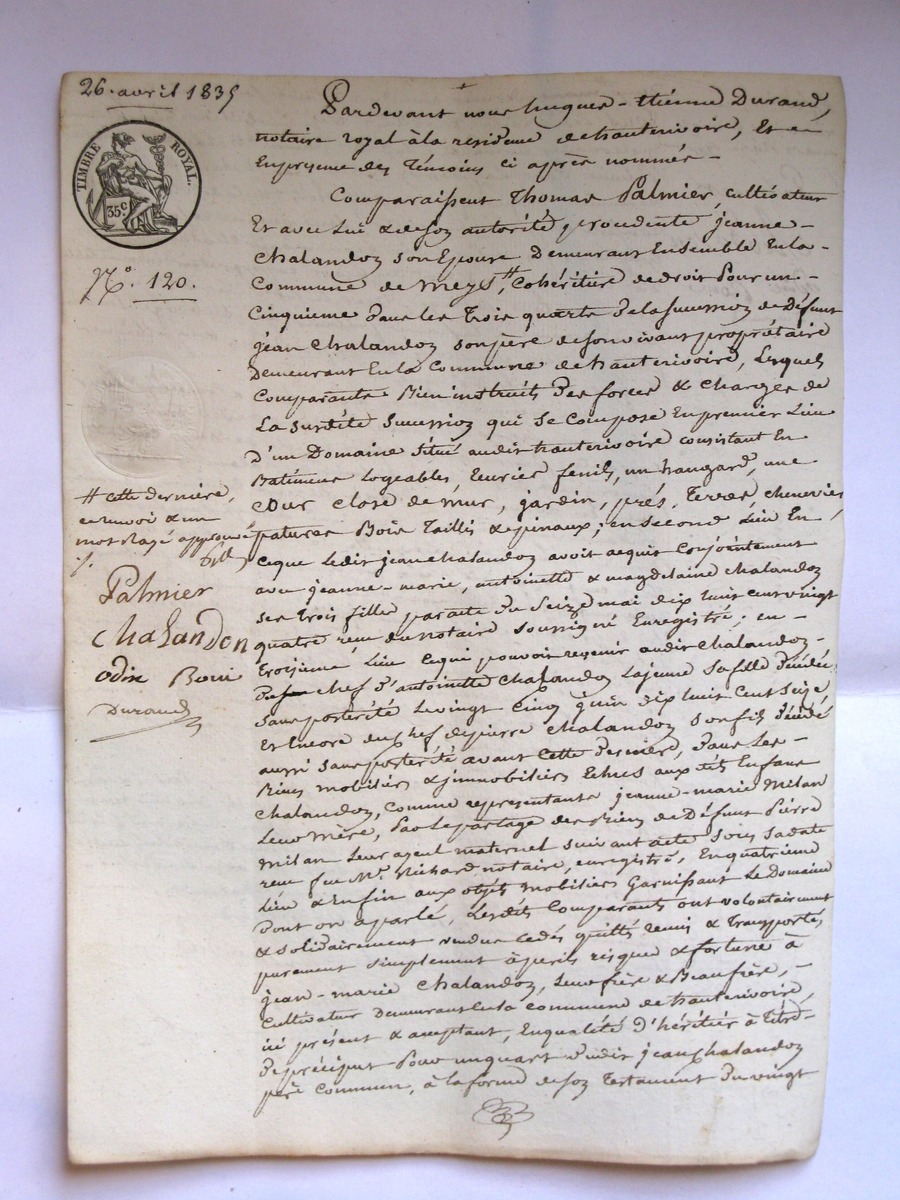 26. avril 1835
TIMBRE ROYAL.
35 c
N.o 120.
Pardevant nous hugues-étienne Durand,
notaire royal à la residence de hauterivoire, Et en
En presence des Témoins ci après nommés -
Comparaissent Thomas Palmier, cultivateur
Et avec lui & de son autorité, procedente jeanne
Chalandon son Epouse Demeurant Ensemble En la
Commune de meys #, Cohéritière de droit Pour un
Cinquieme dans les Trois quarts De la succession de Défunt
jean Chalandon son père de son vivant propriétaire
Demeurant En la Commune de hauterivoire, Lesquels
Comparants Bien instruits Des forces & Charges de
La susdite succession qui se compose En premier Lieu
d'un Domaine situé audit hauterivoire consistant En
Batimens Logeables, Ecuries fenils, un hangard, une
cour close de mur, jardin, prés, Terres, chenevier,
patures Bois Taillis & pinaux; en second Lieu En
ceque Ledit jean chalandon avoit acquis Conjointement
avec jeanne-marie, antoinette & magdelaine Chalandon
ses trois filles par acte Du Seize mai dix huit cent vingt
quatre reçu du notaire soussigné Enregistré; en
troisieme Lieu cequi pouvoit revenir audit chalandon
Du chef d'antoinette Chalandon Lajeune sa fille Décédée
sans postérité Le vingt cinq juin dix huit cent seize,
Et Encore du chef de pierre Chalandon son fils Décédé
aussi sans postérité avant cette Derniere, Dans Les
Biens mobiliers & immobiliers Echus aux dits Enfans
Chalandon, comme représentants jeanne-marie Milan
Leur mère, Par Le partage des Biens de Défunt Pierre
Milan Leur ayeul maternel suivant acte sous sa date
reçu feu Me. Richard notaire, enregistré, En quatrieme
Lieu & Enfin aux objets mobiliers Garnissant Le Domaine
Dont on a parlé, Lesdits Comparants ont volontairement
& solidairement vendus cedés quittés remis & Transportés,
purement simplement à perils risques & fortune à
jean-marie Chalandon, Leur frère & Beaufrère,
Cultivateur Demeurant En la commune de hauterivoire,
ici présent & acceptant, En qualité d'héritier à Titre
De préciput Pour un quart dudit jean Chalandon
père commun, à la forme de son Testament Du vingt
# cette dernière,
renvoi & un
mot rayé approuvé
Palmier
Chalandon
odin Boui
Durand